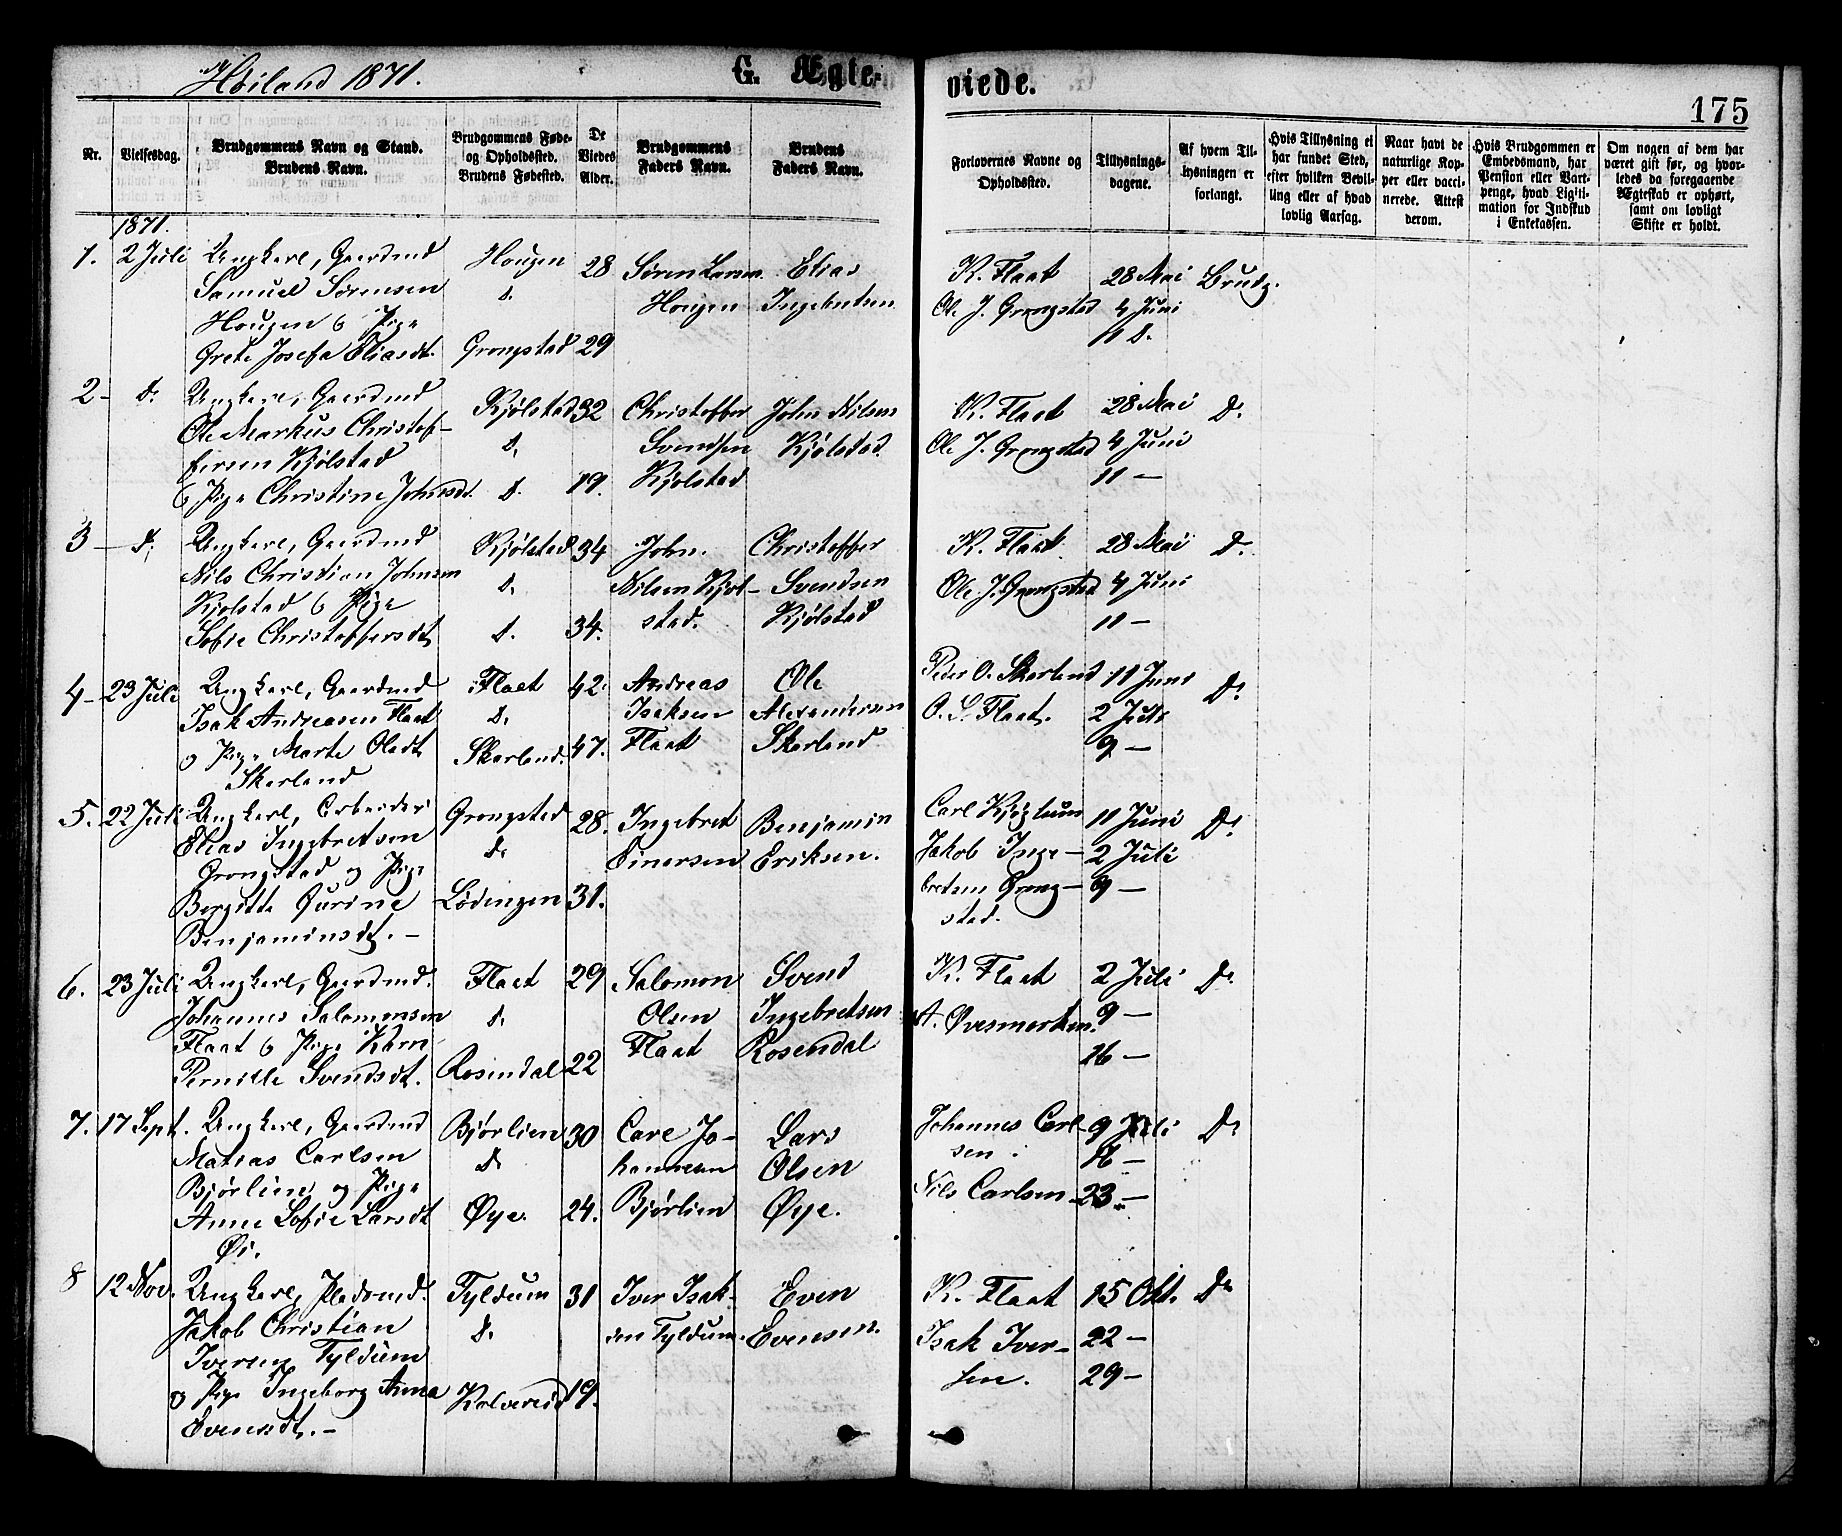 Høiland 1871.
G. Ægte-
viede.
175
Nr.
Vielsesdag.
Brudgommens Navn og Stand.
Brudens Navn.
Brudgommens Føde-
og Opholdssted.
Brudens Fødested.
De
Viedes
Alder.
Brudgommens
Faders Navn.
Brudens
Faders Navn.
Forlovernes Navne og
Opholdssted.
Tillysnings-
dagene.
Af hvem Til-
lysningen er
forlangt.
Hvis Tillysning ei
har fundet Sted,
efter hvilken Bevil-
ling eller af hvad
lovlig Aarsag.
Naar havt de
naturlige Kop-
per eller vacci-
nerede. Attest
derom.
Hvis Brudgommen er
Embedsmand, har
Pension eller Vart-
penge, hvad Ligiti-
mation for Indskud
i Enkekassen.
Om nogen af dem har
været gift før, og hvor-
ledes da foregaaende
Ægteskab er ophørt,
samt om lovligt
Skifte er holdt.
1871.
1. 2 Juli Ungkarl, Gaardmd Hougen 28 Søren Larsen Elias K. Flaat 28 Mai Brudg.
Samuel Sørensen D. Hougen Ingebretsen Ole J. Grongstad 4 Juni
Hougen & Pige 11 D.
Grete Josefa Eliasdt. Grongstad 29
2 - D. Ungkarl, Gaardmd Kjølstad 32 Christoffer John Nilsen K. Flaat 28 Mai D.
Ole Markus Christof- D. Svendsen Kjølstad Ole J. Grongstad 4 Juni
fersen Kjølstad Kjølstad 11 —
& Pige Christine Johnsdt. D. 19.
3 - D. Ungkarl, Gaardmd Kjølstad 34 John Christoffer K. Flaat 28 Mai D.
Nils Christian Johnsen D. Nilsen Kjøl- Svendsen Ole J. Grongstad 4 Juni
Kjølstad & Pige stad. Kjølstad 11 —
Sofie Christoffersdt. D. 34.
4 - 23 Juli Ungkarl, Gaardmd Flaat 42. Andreas Ole Peder O. Skarland 11 Juni D.
Isak Andreasen Flaat D. Isaksen Alexandersen O. S. Flaat. 2 Juli
og Pige Marte Olsdt. Skarland. 47. Flaat Skarland. 9 —
Skarland
5. 22 Juli Ungkarl, Arbeider Grongstad 28. Ingebret Benjamin Carl 11 Juni D.
Elias Ingebretsen D. Einersen Eriksen. Jakob Inge- 2 Juli
Grongstad og Pige bretsen Grong- 9 —
Bergitte Gurine Lødingen 31. stad.
Benjaminsdt. —
6. 23 Juli Ungkarl, Gaardmd. Flaat 29 Salomon Svend K. Flaat 2 Juli D.
Johannes Salomonsen D. Olsen Ingebretsen A. Øvesmarken. 9 —
Flaat & Pige Karn Flaat Rosendal 16 —
Pernille Svendsdt. Rosendal 22
7. 17 Sept. Ungkarl, Gaardmd Bjørlien 30 Carl Jo- Lars Johannes Carl- 9 Juli D.
Matias Carlsen D. hannesen Olsen sen. 16 —
Bjørlien og Pige Bjørlien Øye. Nils Carlsen 23 —
Anne Sofie Larsdt Øye. 24.
Øi.
8 12 Nov. Ungkarl, Pladsmd. Tyldum 31 Iver Isak- Even K. Flaat 15 Okt. D.
Jakob Christian D. sen Tyldum. Evensen. Isak Iver- 22 —
Iversen Tyldum sen. 29 —
og Pige Ingeborg Anna Kolvereid 19.
Evensdt. —